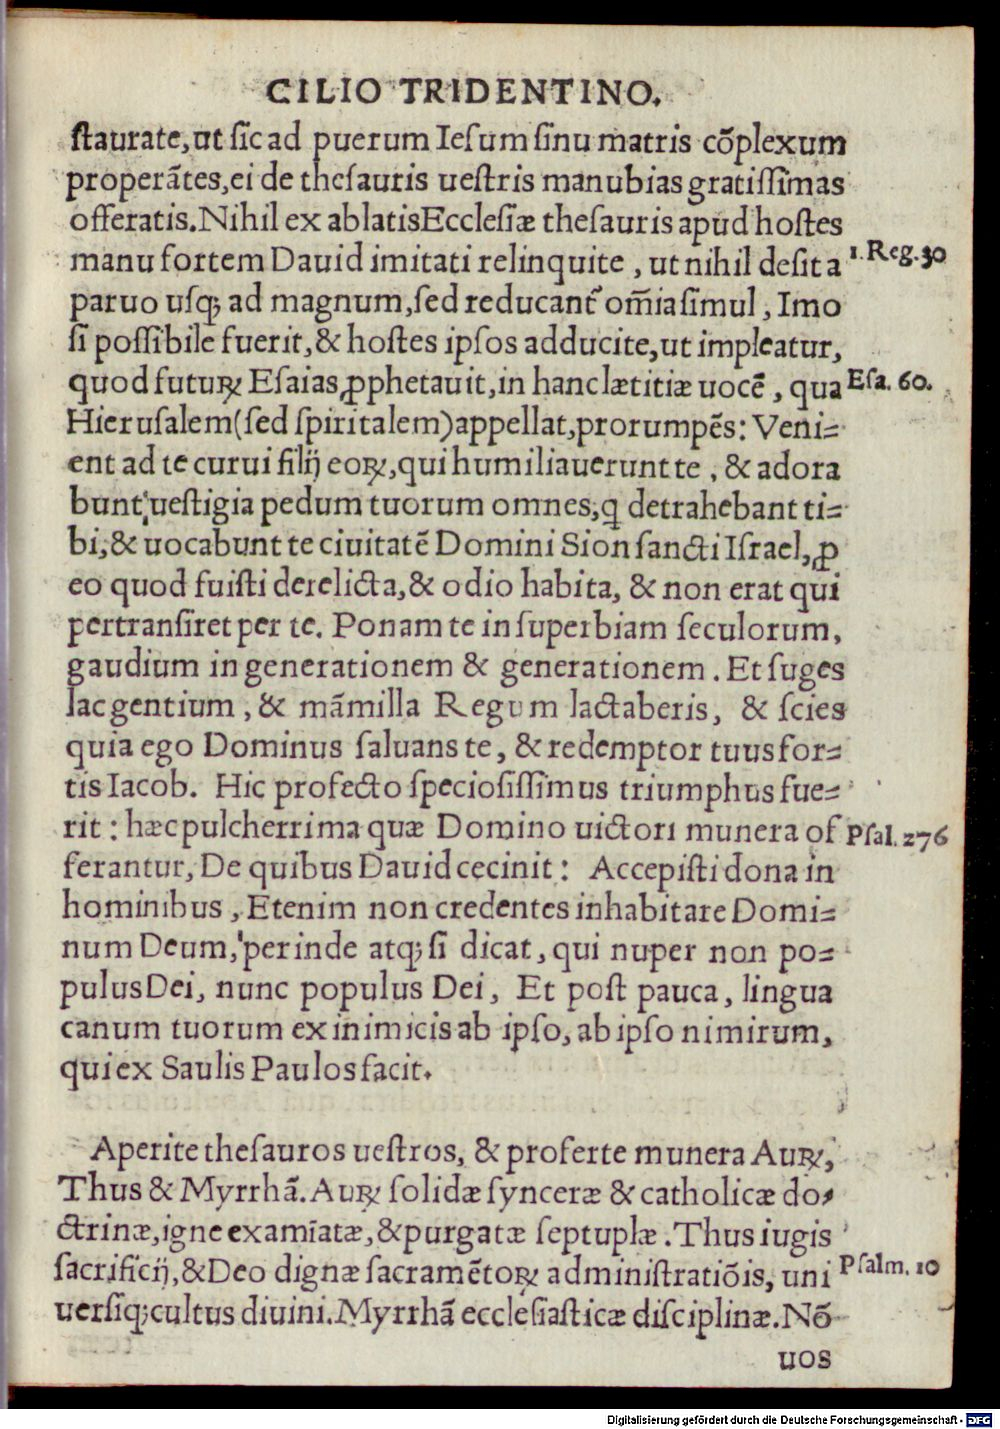 CILIO TRIDENTINO.
ſtaurate, ut ſic ad puerum Ieſum ſinu matris cõplexum
properãtes, ei de theſauris ueſtris manubias gratiſſimas
offeratis. Nihil ex ablatis Eccleſiæ theſauris apud hoſtes
manu fortem Dauid imitati relinquite, ut nihil deſit a
1. Reg. 30
paruo uſq; ad magnum, ſed reducant᷑ om̃ia ſimul, Imo
ſi poſſibile fuerit, & hoſtes ipſos adducite, ut impleatur,
quod futuꝝ Eſaias ꝓphetauit, in hanc lætitiæ uocẽ, qua
Eſa. 60.
Hieruſalem (ſed ſpiritalem) appellat, prorumpẽs: Veni⸗
ent ad te curui filij eoꝝ, qui humiliauerunt te, & adora
bunt ueſtigia pedum tuorum omnes, q detrahebant ti⸗
bi, & uocabunt te ciuitatẽ Domini Sion ſancti Iſrael, ꝓ
eo quod fuiſti derelicta, & odio habita, & non erat qui
pertranſiret per te. Ponam te in ſuperbiam ſeculorum,
gaudium in generationem & generationem. Et ſuges
lac gentium, & mãmilla Regum lactaberis, & ſcies
quia ego Dominus ſaluans te, & redemptor tuus for⸗
tis Iacob. Hic profecto ſpecioſiſſimus triumphus fue⸗
rit: hæc pulcherrima quæ Domino uictori munera of
Pſal. 276
ferantur, De quibus Dauid cecinit: Accepiſti dona in
hominibus, Etenim non credentes inhabitare Domi⸗
num Deum, perinde atq; ſi dicat, qui nuper non po⸗
pulus Dei, nunc populus Dei, Et poſt pauca, lingua
canum tuorum ex inimicis ab ipſo, ab ipſo nimirum,
qui ex Saulis Paulos facit.
Aperite theſauros ueſtros, & proferte munera Auꝝ,
Thus & Myrrhã. Auꝝ ſolidæ ſynceræ & catholicæ do⸗
ctrinæ, igne examĩatæ, & purgatæ ſeptuplæ. Thus iugis
ſacrificij, & Deo dignæ ſacramẽtoꝝ adminiſtratiõis, uni
Pſalm. 10
uerſiq; cultus diuini. Myrrhã eccleſiaſticæ diſciplinæ. Nõ
uos
Digitalisierung gefördert durch die Deutsche Forschungsgemeinschaft - DFG